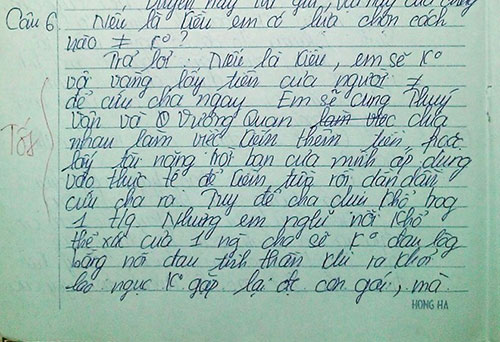 Duyên hay tài giỏi, vai hay của chúng
Câu 6. Nếu là Kiều em có lựa chọn cách
nào ≠ k°?
Trả lời: Nếu là Kiều, em sẽ k°
vội vàng lấy tiền của người ≠
để cứu cha ngay Em sẽ cùng Thuý
Vân và Vương Quan làm việc chia
nhau làm việc kiếm thêm tiền, hoặc
lấy tài năng trời ban của mình áp dụng
vào thực tế để kiếm tiền rồi dần dần
cứu cha ra. Tuy để cha chịu khổ
1 t/g Nhưng em nghĩ nỗi khổ
thể xác của 1 ng cha sẽ k° đau lòng
bằng nỗi đau tinh thần khi ra khỏi
lao ngục k° gặp lại đc con gái, mà
Tốt
HONG HA